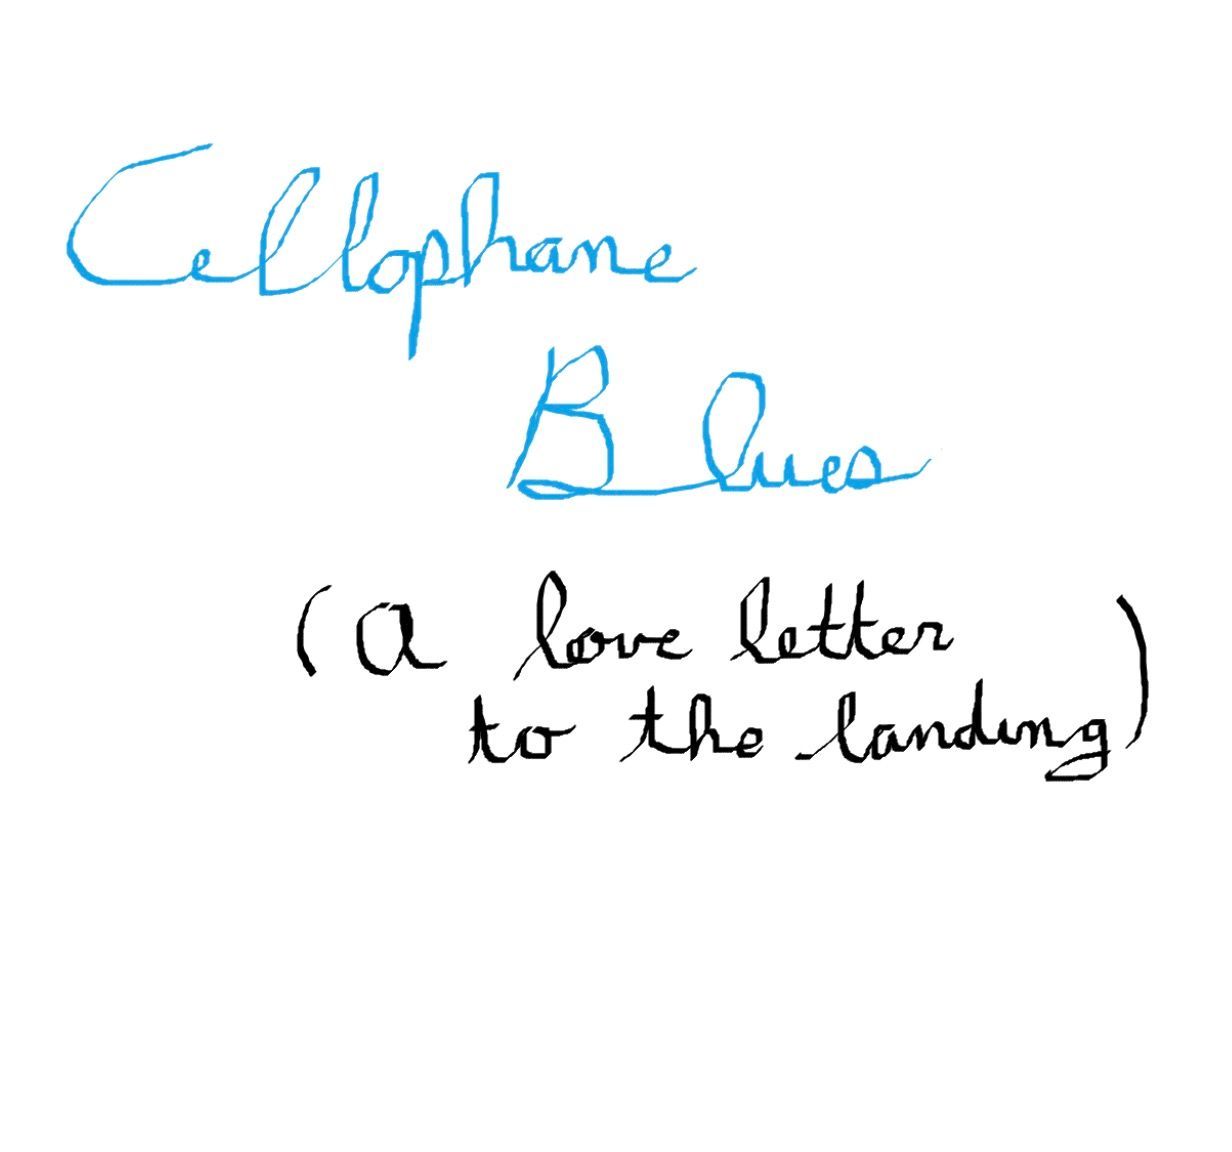 Cellophane
Blues
(a love letter
to the landing)